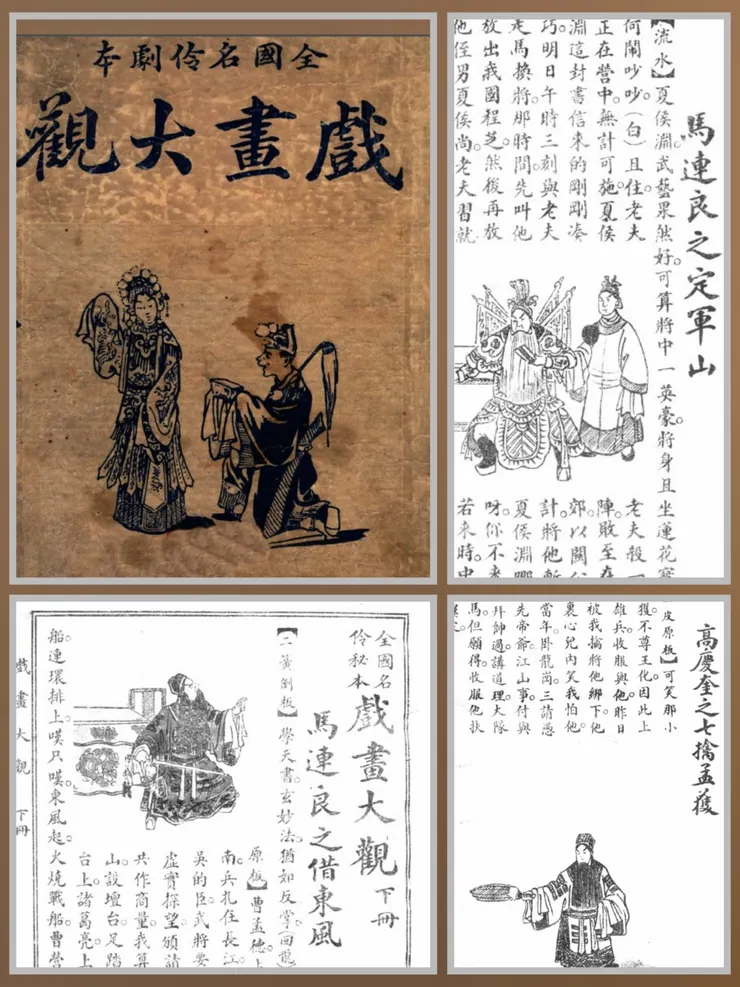 全國名伶劇本
戲畫大觀
馬連良之定軍山
【流水】夏侯淵。武藝果然好。可算將中一英豪。將身且坐蓮花寶
何鬧吵吵。(白)且住。老夫
正在營中。無計可施。夏侯
淵這封書信來的剛剛凑
巧明日午時三刻與老夫
走馬換將。那時間先叫他
放出我國程芝。然後再放
他侄男夏侯尚。老夫習就
老夫殺一
陣敗至在
郊。以關公
計將他斬
夏侯淵哪
呀。你不來
若來時。中
全國名伶秘本
戲畫大觀 下冊
馬連良之借東風
【二黃倒板】學天書。玄妙法。猶如反掌(回龍
原板】曹孟德上
南兵扎住長江
吳的臣。武將要
虛實探望。頒請
共作商量。我算
山設壇台。足踏
台上。諸葛亮上
船。連環排上。嘆只嘆東風起。火燒戰船。曹營
戲畫大觀 下冊
高慶奎之七擒孟獲
皮原板】可笑那小
獲。不尊王化。因此上
雄兵收服與他。昨日
被我擒將他綁下。他
裏心兒內笑我怕他。
當年臥龍崗。三請愚
先帝爺江山事。付與
拜師過。講道理。大隊
馬。但願得。收服他扶